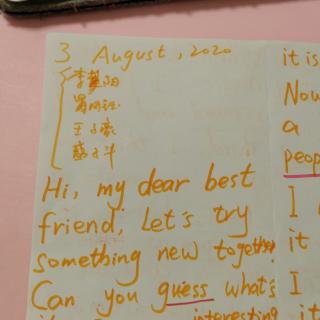 3 August, 2020
王子豪
Hi, my dear best
friend, let's try
something new together
Can you guess what's
interesting
it is
Now
a
peop
I
it
I
it